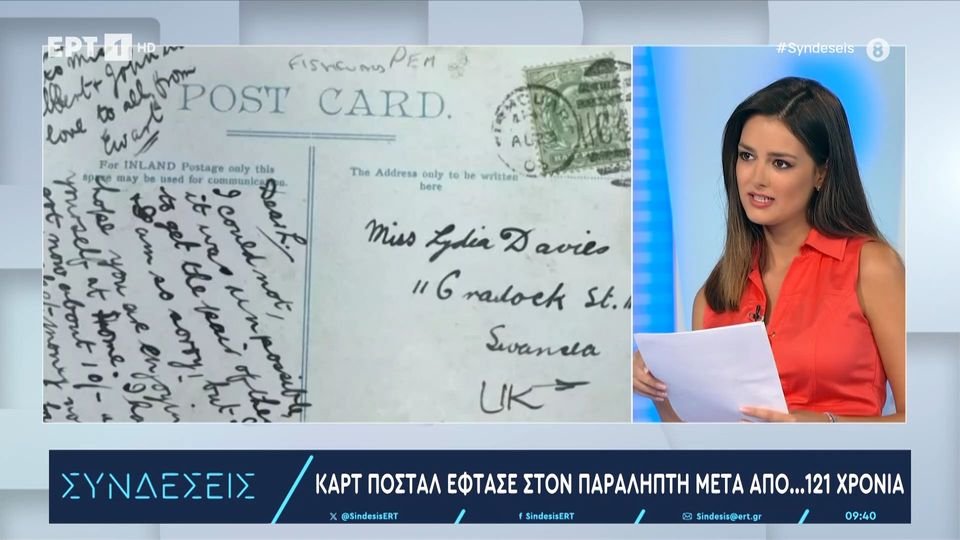 ΕΡΤ1 HD
#Syndeseis 8
to miss
love to all from
Ewart
FISHGUARD PEM
POST CARD.
For INLAND Postage only this
space may be used for communication.
The Address only to be written
here
Dear L,
I could not,
it was impossible,
to get the pair of the
I am so sorry! but
hope you are enjoyin
yourself at home. I ha
got now about 10/- a
money no
Miss Lydia Davies
11 Cradock St.
Swansea
UK
ΣΥΝΔΕΣΕΙΣ
ΚΑΡΤ ΠΟΣΤΑΛ ΕΦΤΑΣΕ ΣΤΟΝ ΠΑΡΑΛΗΠΤΗ ΜΕΤΑ ΑΠΟ...121 ΧΡΟΝΙΑ
X @SindesisERT
f SindesisERT
Sindesis@ert.gr
09:40